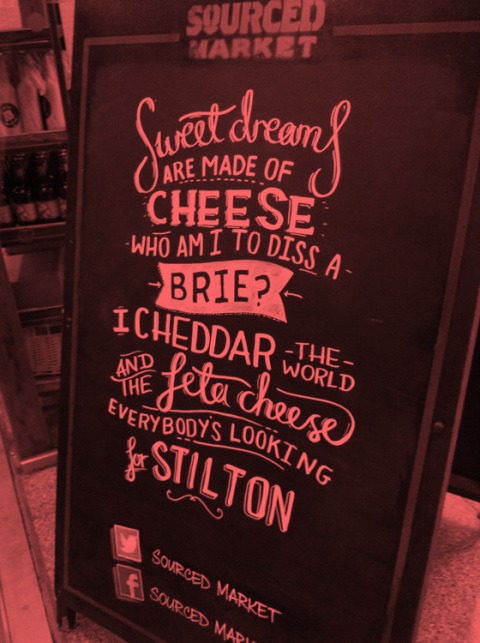 SOURCED
MARKET
Sweet dreams
ARE MADE OF
CHEESE
WHO AM I TO DISS A
BRIE?
I CHEDDAR -THE-
WORLD
AND
THE feta cheese
EVERYBODY'S LOOKING
for STILTON
SOURCED MARKET
SOURCED